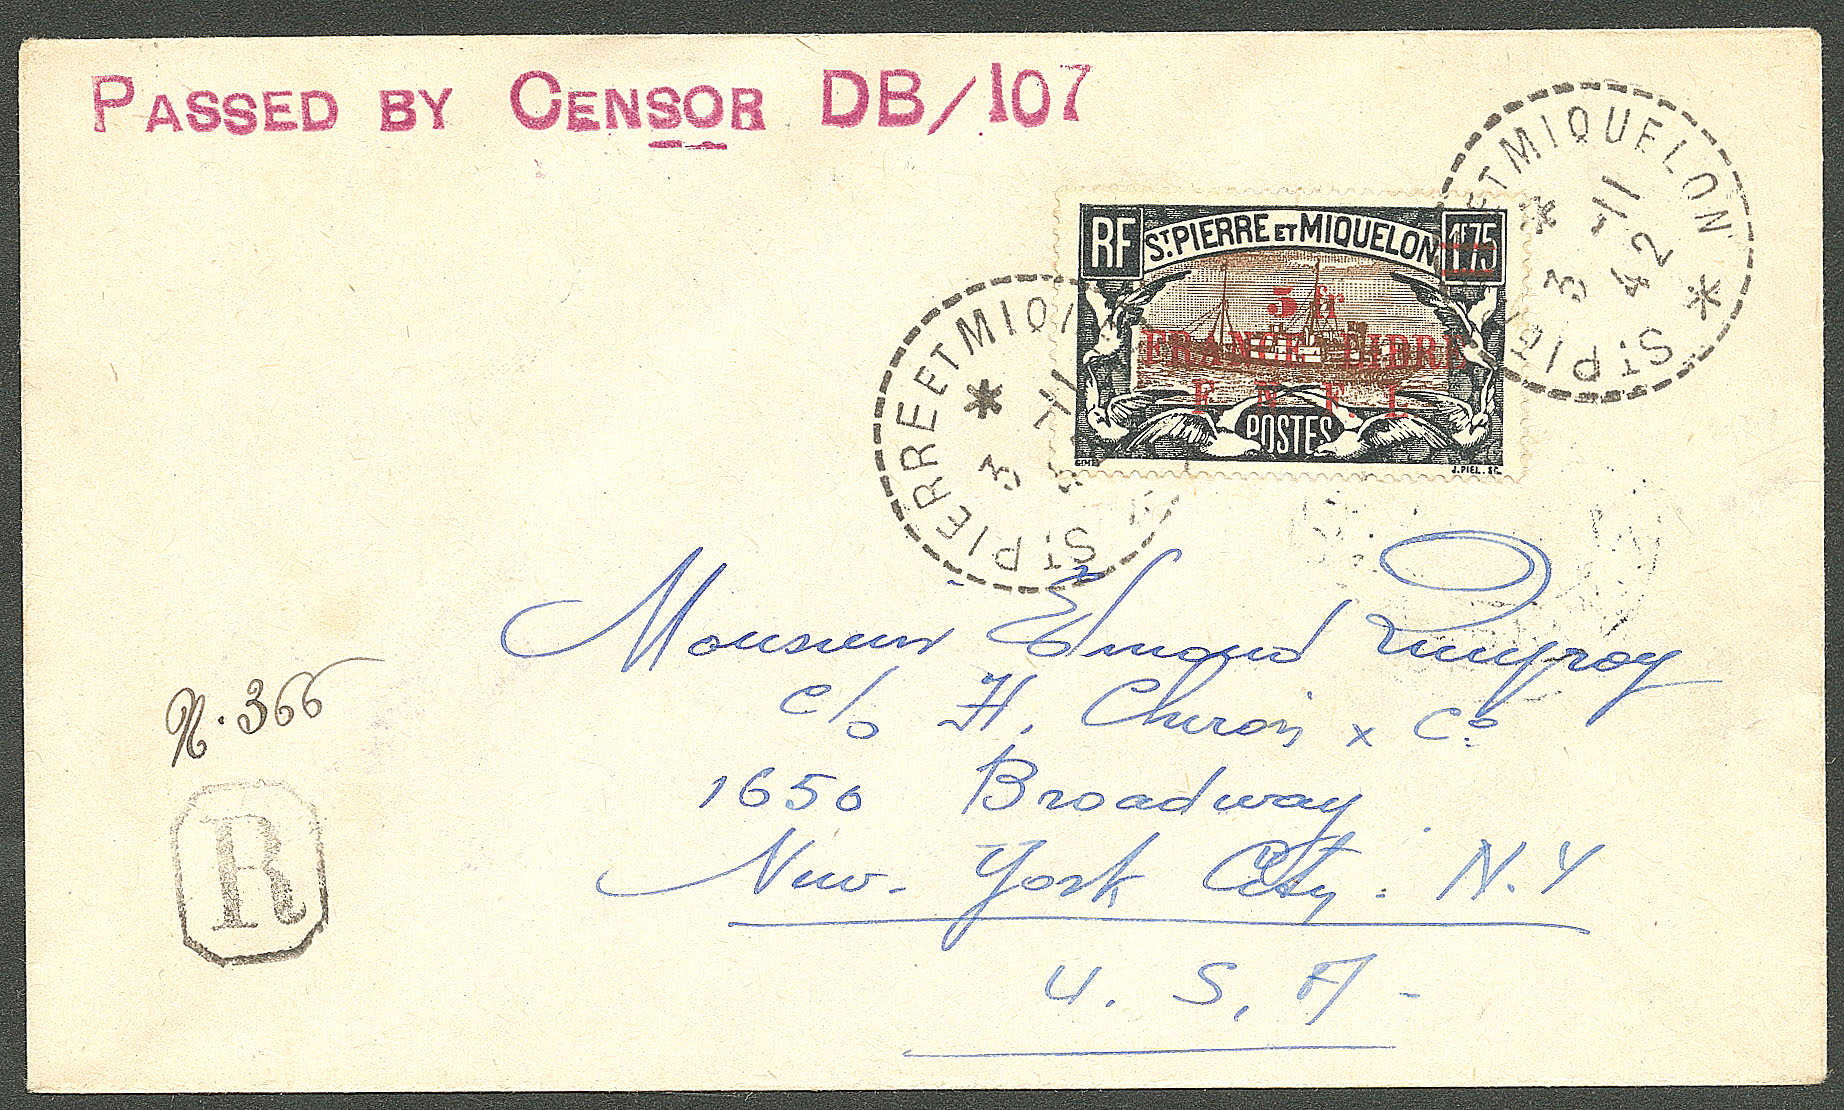 PASSED BY CENSOR DB/107
ST PIERRE ET MIQUELON
3 -11 42
RF ST PIERRE ET MIQUELON 1F75
5 fr
FRANCE LIBRE
F. N. F. L.
POSTES
J. PIEL. SC.
ST PIERRE ET MIQU
3 -11
Monsieur Edmond
c/o H. Chiron & Co
1650 Broadway
New-York City. N.Y
U. S. A-
N. 366
R